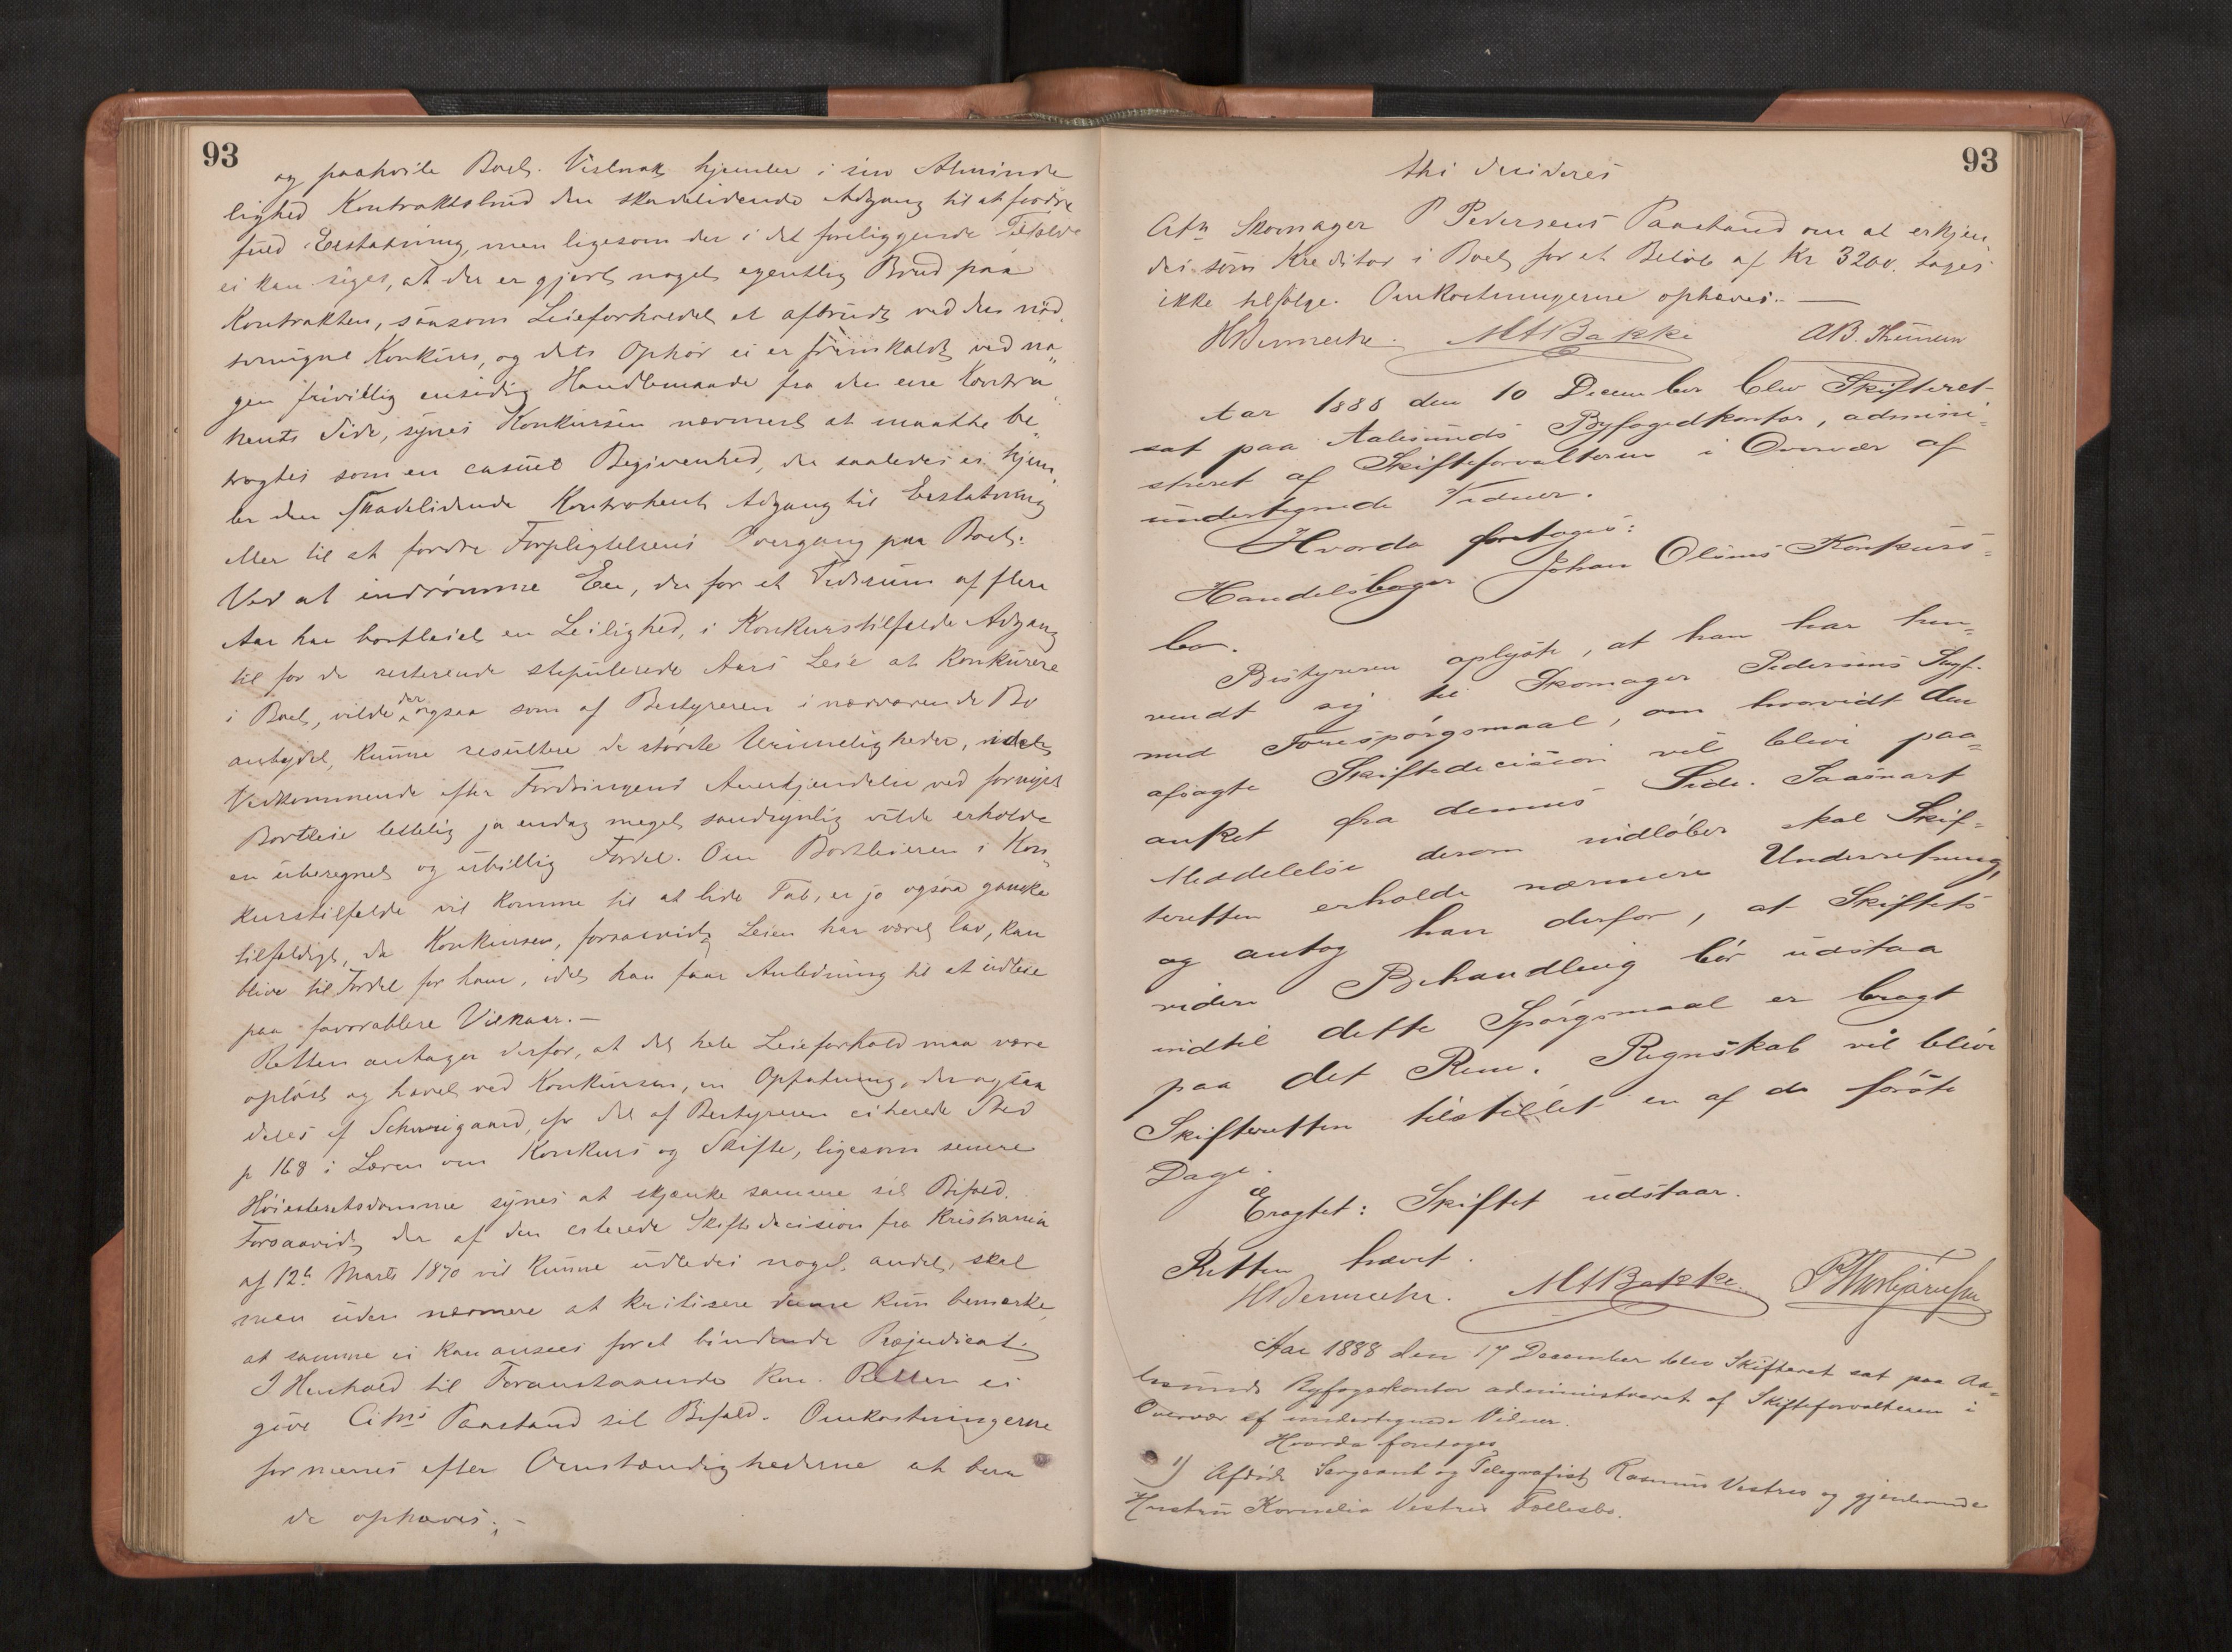 93
og paahvile Boet. Vistnok hjemler i sin Alminde
lighed Kontraktsbrud den skadelidende Adgang til at fordre
fuld Erstatning, men ligesom der i det foreliggende Tilfælde
ei kan siges, at der er gjort noget egentlig Brud paa
Kontrakten, saasom Leieforholdet er afbrudt ved den nød„
tvungne Konkurs, og dets Ophør ei er fremkaldt ved no„
gen frivillig ensidig Handlemaade fra den ene Kontra„
hents Side, synes Konkursen nærmest at maatte be„
tragtes som en casuel Begivenhed, der saaledes ei hjem„
ler den skadelidende Kontrahent Adgang til Erstatning
eller til at fordre Forpligtelsens Overgang paa Boet.
Ved at indrømme Een, der for et Tidsrum af flere
Aar har bortleiet en Leilighed, i Konkurstilfælde Adgang
til for de resterende stipulerede Aars Leie at konkurere
i Boet, vilde der ogsaa som af Bestyreren i nærværende Bo
antydet, kunne resultere de største Urimeligheder, idet
Vedkommende efter Fordringens Anerkjendelse ved fornyet
Bortleie lettelig ja endog meget sandsynlig vilde erholde
en uberegnet og ubillig Fordel. Om Bortleieren i Kon„
kurstilfælde vil komme til at lide Tab, er jo ogsaa ganske
tilfældigt, da Konkursen, forsaavidt Leien har været lav, kan
blive til Fordel for ham, idet han faar Anledning til at udleie
paa favorablere Vilkaar.—
Retten antager derfor, at det hele Leieforhold maa være
opløst og hævet ved Konkursen, en Opfatning, der ogsaa
deles af Schweigaard, cfr det af Bestyreren citerede Sted
p 168 i Læren om Konkurs og Skifte, ligesom senere
Høiesteretsdomme synes at skjænke samme sit Bifald.
Forsaavidt der af den citerede Skiftedecision fra Kristiania
af 12te Marts 1870 vil kunne udledes noget andet, skal
man uden nærmere at kritisere denne kun bemærke,
at samme ei kan ansees for et bindende Præjudicat.
I Henhold til Foranstaaende kan Retten ei
give Citns Paastand sit Bifald. Omkostningerne
formenes efter Omstændighederne at bur
de ophæves.—
93
thi decideres
Ctn Skomager P Pedersens Paastand om at erkjen„
des som Kreditor i Boet for et Beløb af Kr 3200. tages
ikke tilfølge. Omkostningerne ophæves.—
MABakke
Aar 1888 den 10 December blev Skifteret
sat paa Aalesunds Byfogedkontor, admini„
streret af Skifteforvalteren i Overvær af
undertegnede Vidner.
Hvorda foretoges:
Handelsborger Johan Olsens Konkurs=
bo.
Bestyreren oplyste, at han har hen„
vendt sig til Skomager Pedersens Sagf.
med Forespørgsmaal, om hvorvidt den
afsagte Skiftedecision vil blive paa=
anket fra dennes Side. Saasnart
Meddelelse derom indløber skal Skif=
teretten erholde nærmere Underretning,
og antog han derfor, at Skiftets
videre Behandling bør udstaa
indtil dette Spørgsmaal er bragt
paa det Rene. Regnskab vil blive
Skifteretten tilstillet en af de første
Dage.
Eragtet: Skiftet udstaar.
Retten hævet.
MABakke
Aar 1888 den 17 December blev Skifteret sat paa Aa=
lesunds Byfogedkontor administreret af Skifteforvalteren i
Overvær af undertegnede Vidner.
Hvorda foretoges
1) Afdøde Sergeant og Telegrafist Rasmus Vestres og gjenlevende
Hustru Kornelia Vestres Fællesbo.